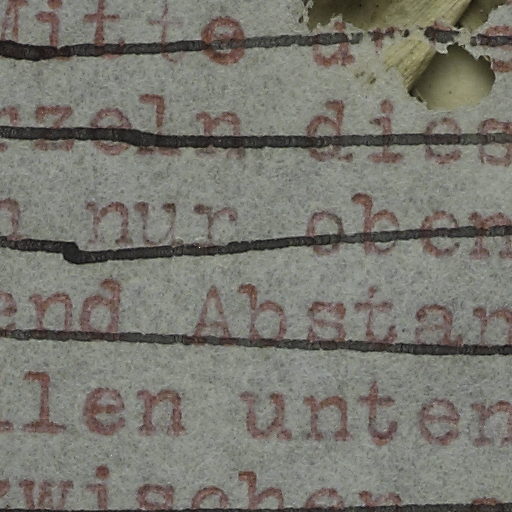 Mitte
rzeln dies
n nur oben
end Abstan
llen unten
zwischen